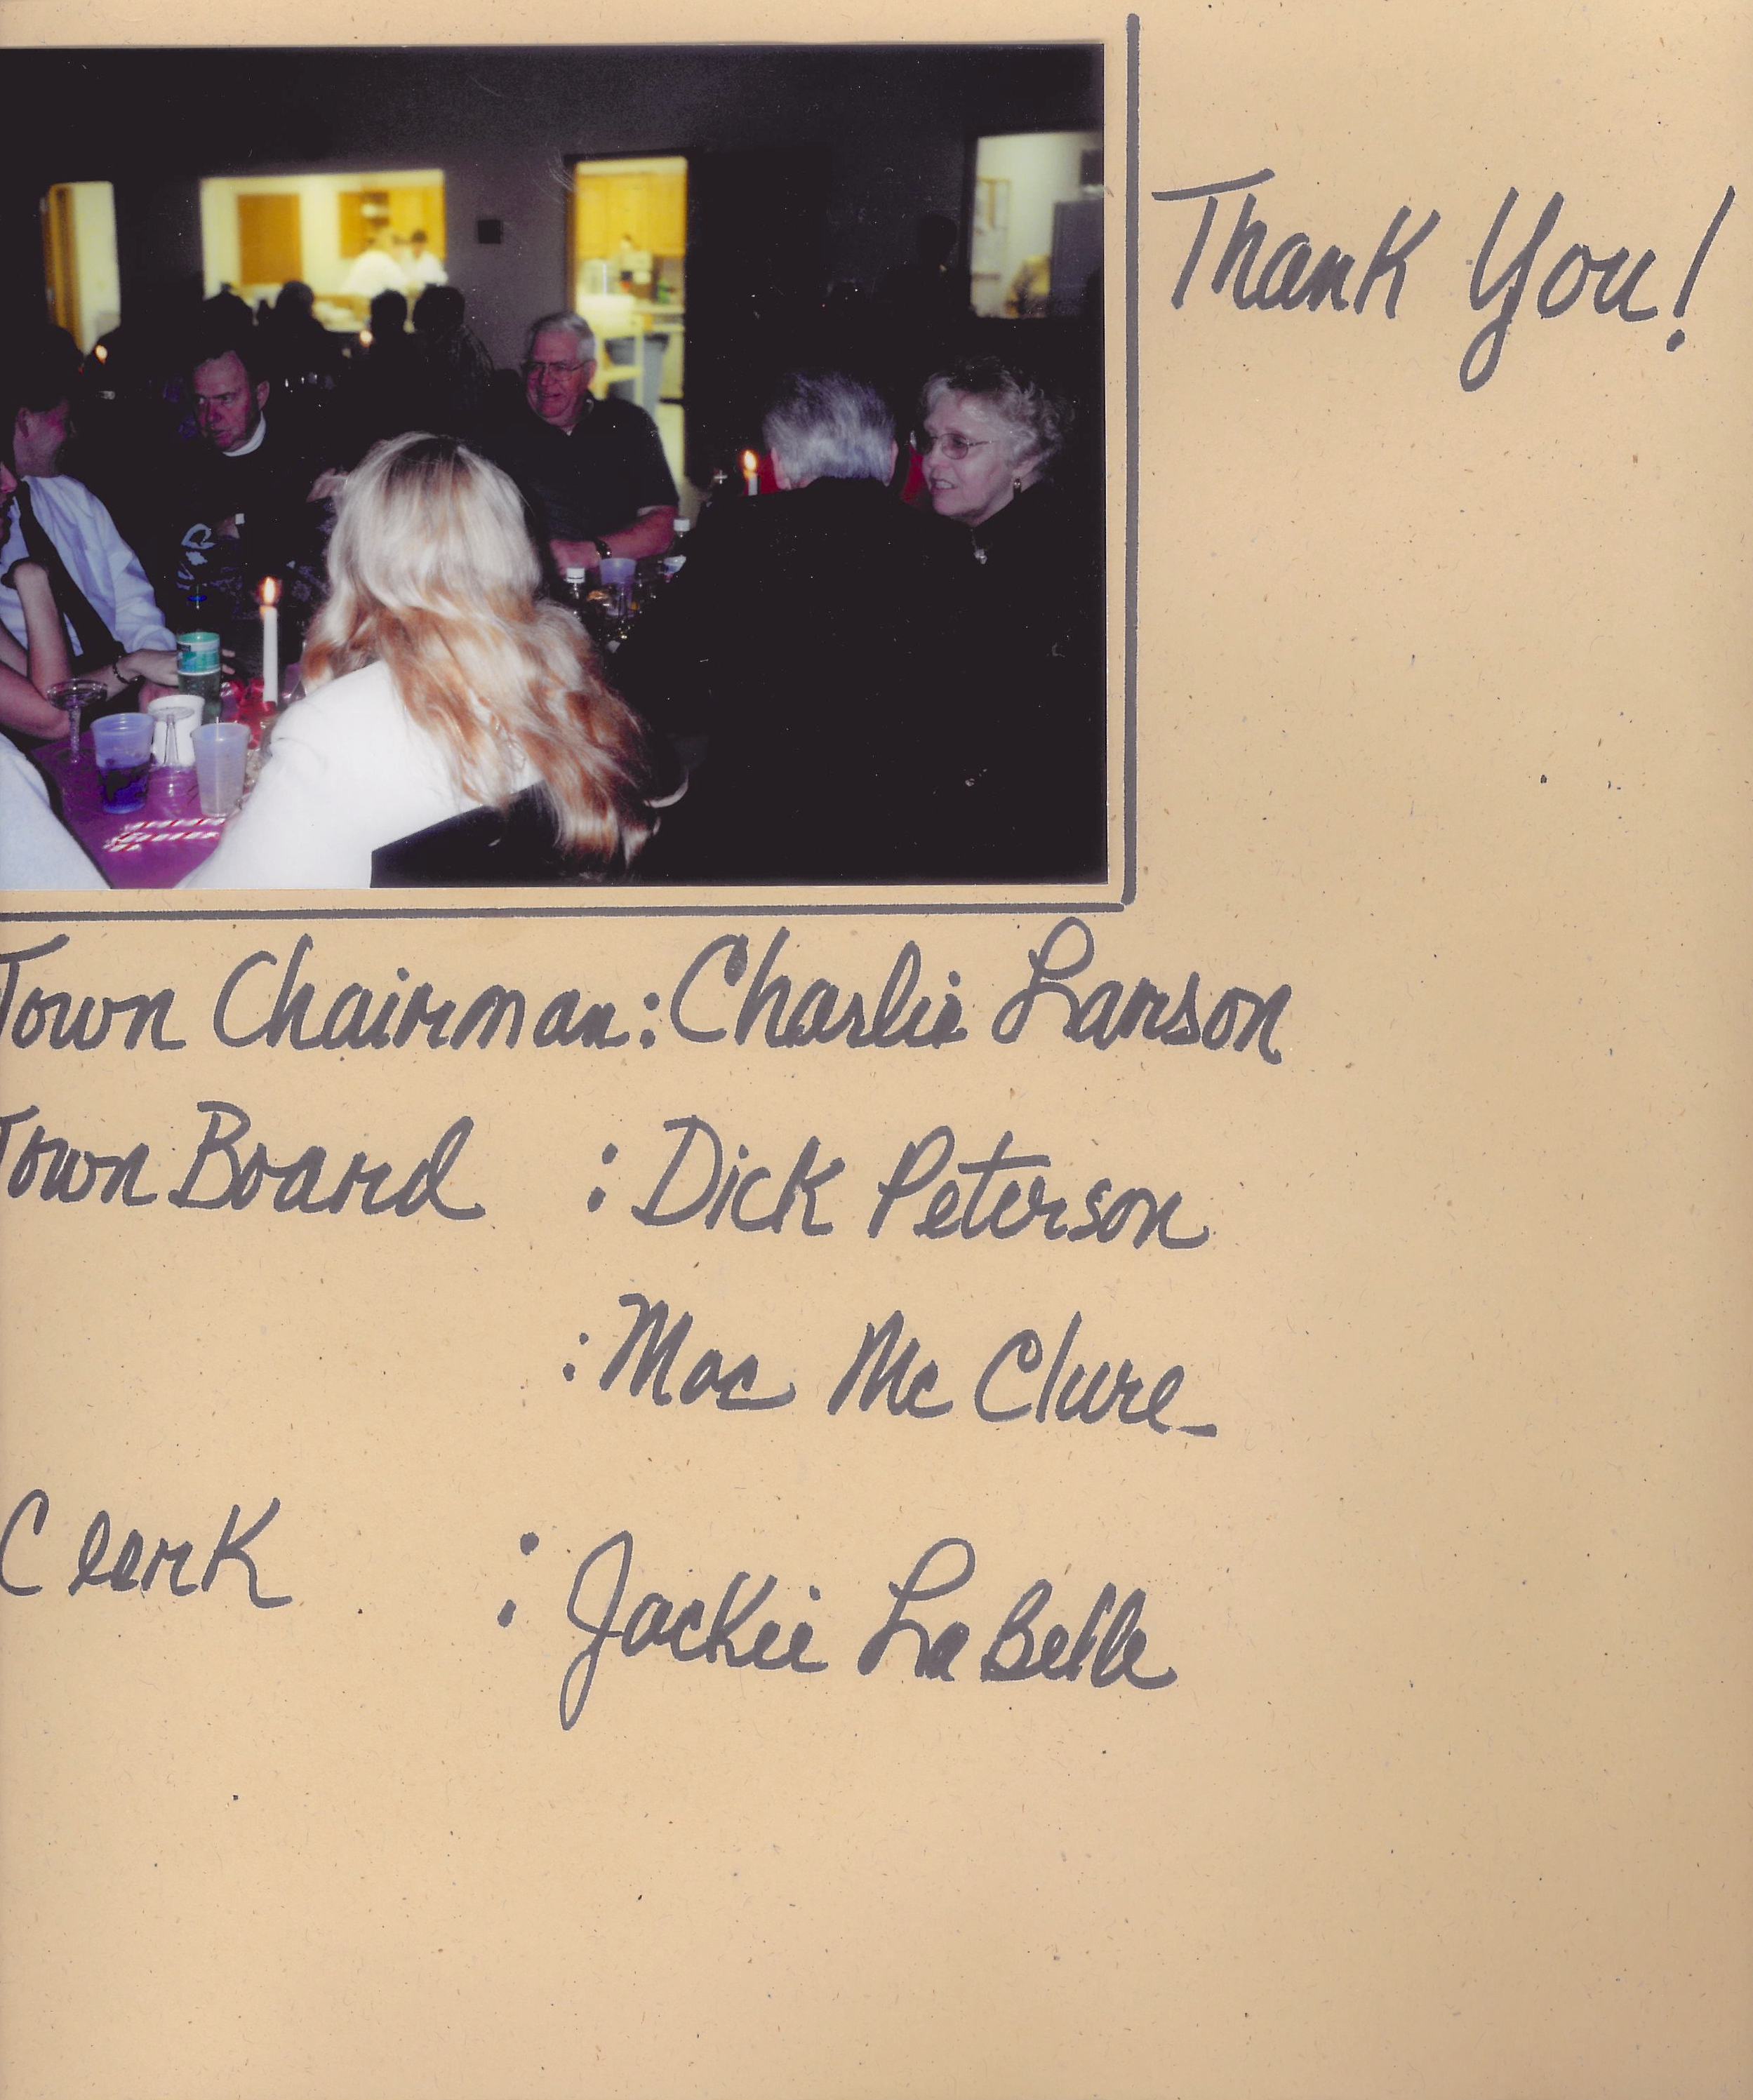 Thank You!
Town Chairman: Charlie Larson
Town Board : Dick Peterson
: Mac Mc Clure
Clerk : Jackie LaBelle